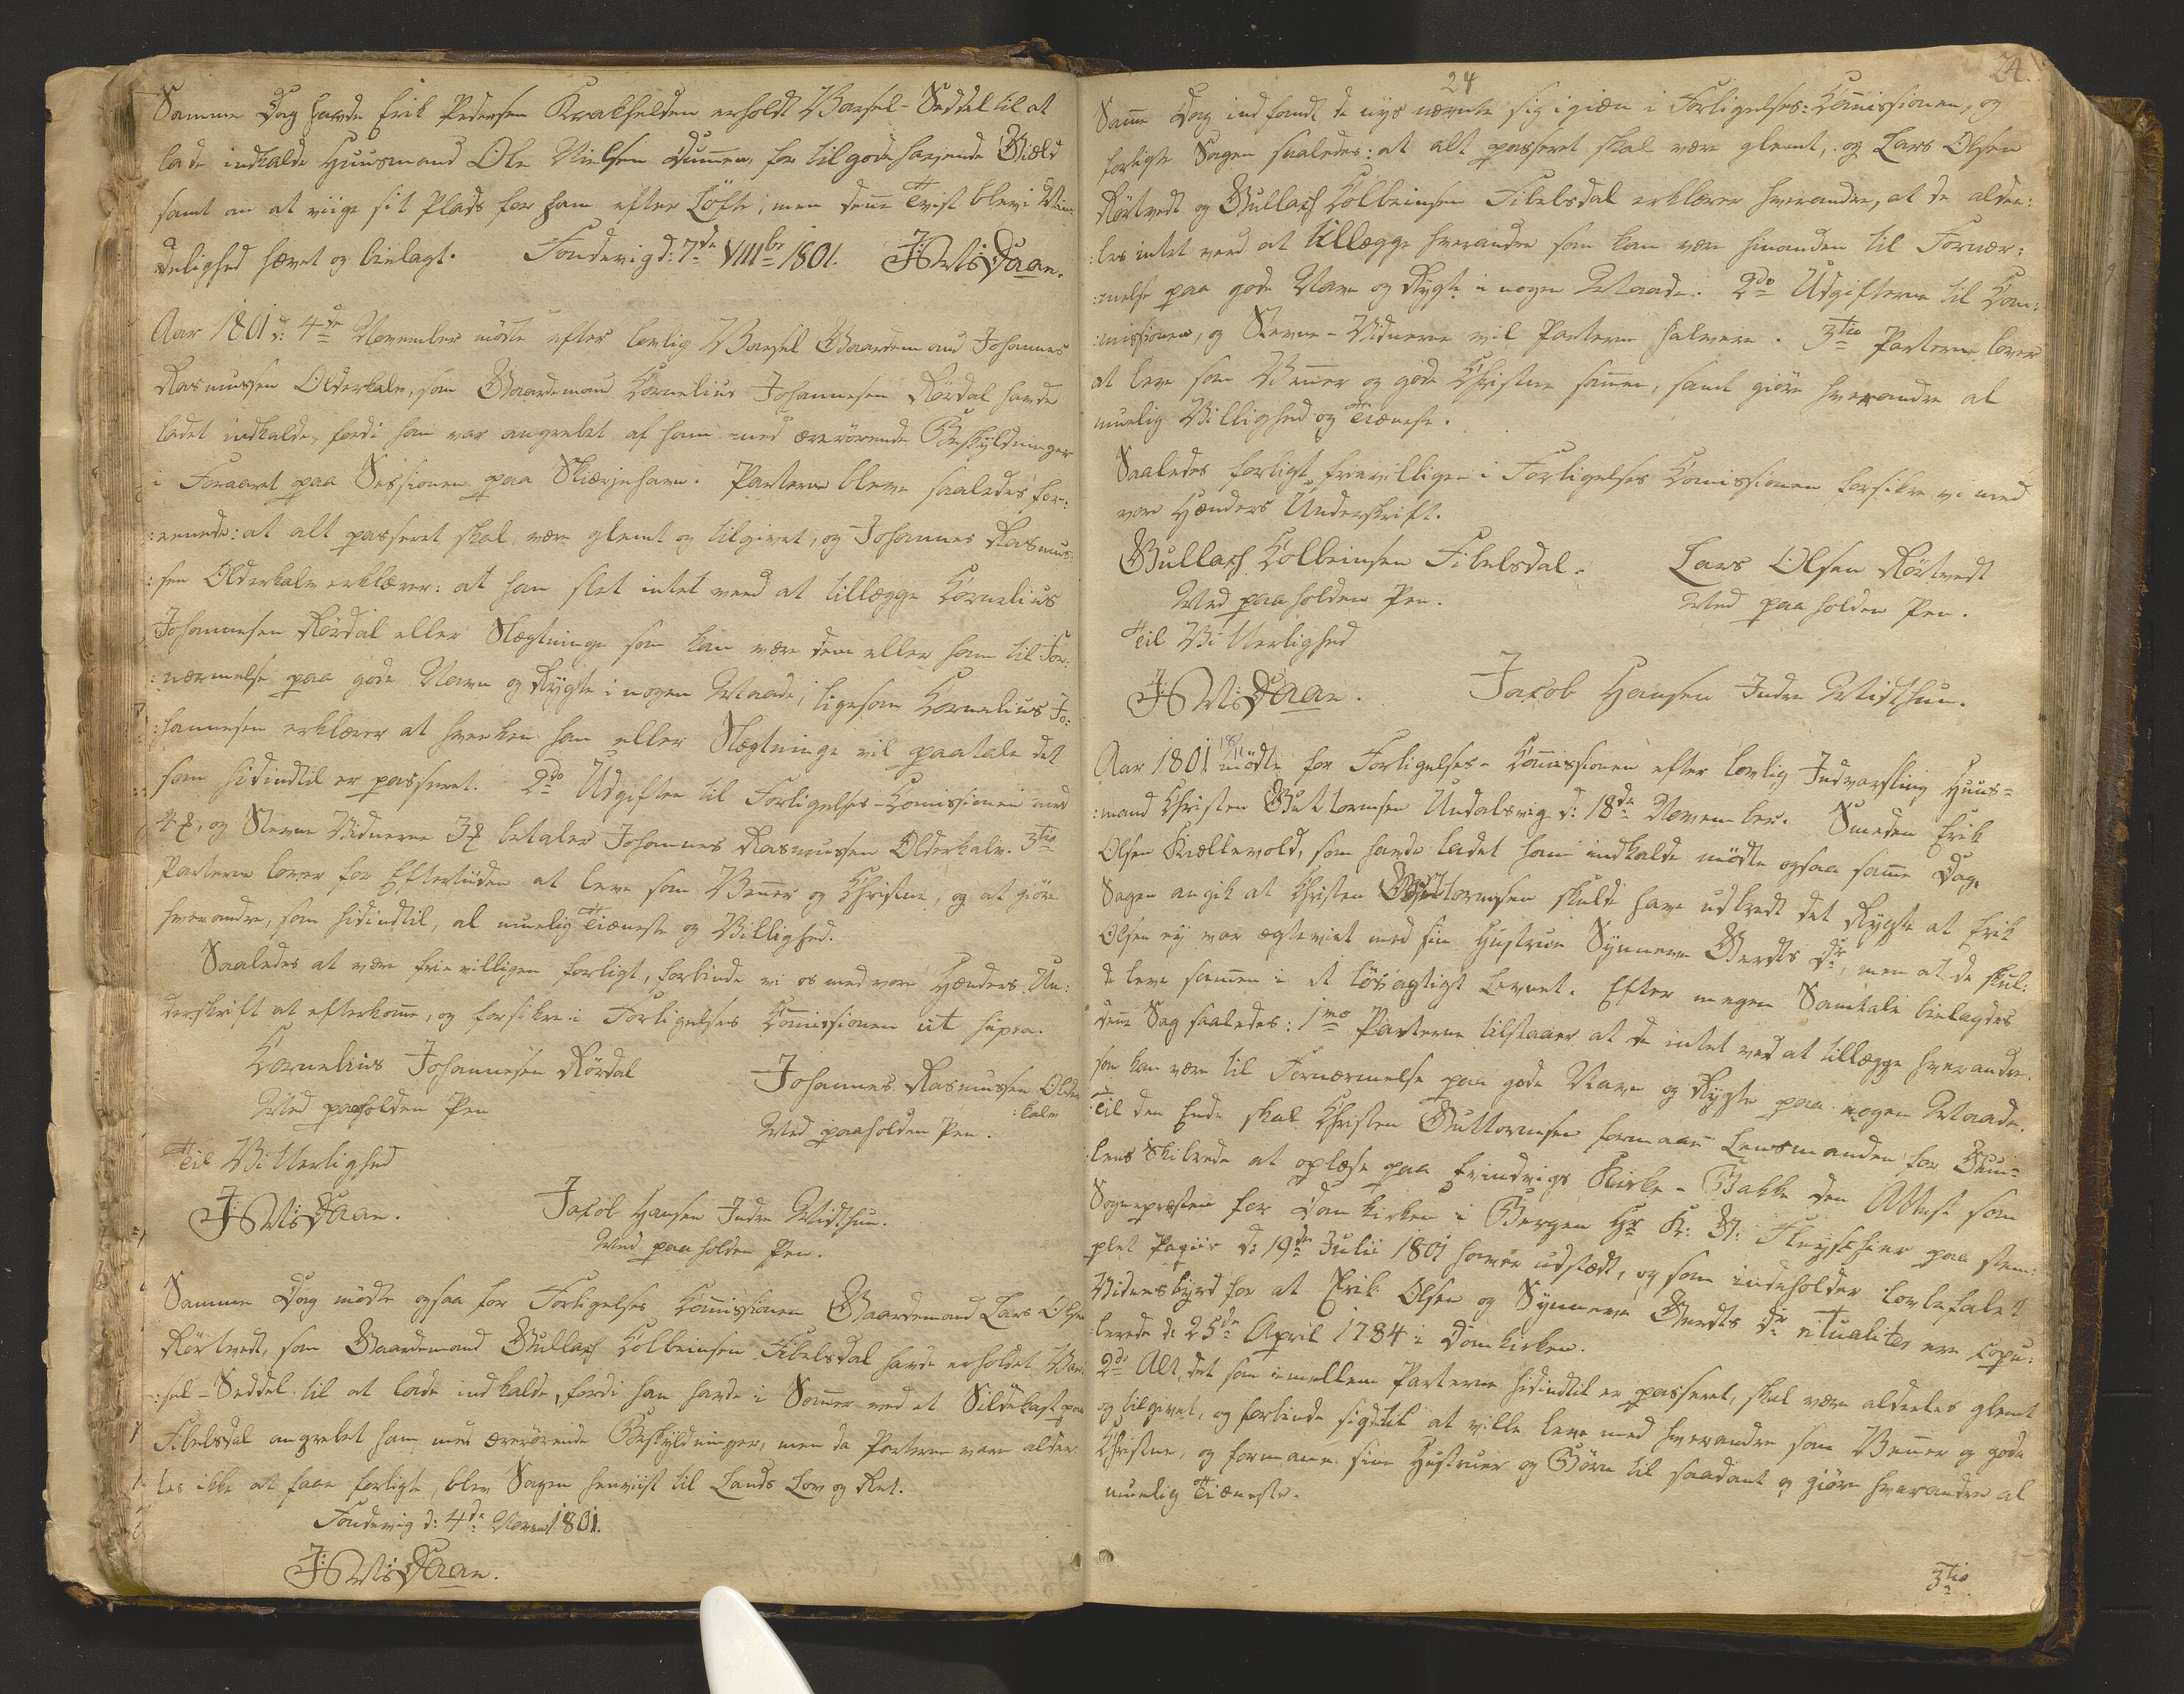 Samme Dag havde Erik Pedersen Krakhelden erholdt Varsel-Seddel til at
lade indkalde Huusmand Ole Nielsen Dummen, for tilgodehavende Giæld
samt om at viige sit Plads for ham efter Løfte; men denne Tvist blev i Min-
delighed hævet og bielagt. Fondevig d: 7de VIIIbr 1801.
Aar 1801 d: 4de November mödte efter lovlig Varsel Gaardemand Johannes
Rasmussen Olderkalv, som Gaardemand Cornelius Johannesen Rördal havde
ladet indkalde, fordi han var angrebet af ham med ærerörende Beskyldninger
i Foraaret paa Sessionen paa Skierjehavn. Parterne bleve saaledes for:
:eenede: at alt passeret skal være glemt og tilgivet, og Johannes Rasmus:
:sen Olderkalv erklærer: at han slet intet veed at tillægge Cornelius
Johannesen Rördal eller Slægtninge som kan være dem eller ham til For:
:nærmelse paa gode Navn og Rygte i nogen Maade; ligesom Cornelius Jo:
:hannesen erklærer at hverken han eller Slægtninge vil paatale det
som hidindtil er passeret. 2do Udgiften til Forligelses-Comissionen med
4 ƒ, og Stevne Vidnerne 3 ƒ betaler Johannes Rasmussen Olderkalv. 3tio
Parterne lover for Eftertiiden at leve som Venner og Christne, og at giöre
hverandre, som hidindtil, al muelig Tieneste og Billighed.
Saaledes at være frievilligen forligt, forbinde vi os med vore Hænders Un:
derskrift at efterkomme, og forsikre i Forligelses Commissionen ut supra.
Cornelius Johannesen Rördal
Johannes Rasmussen Older
:kalv
Med paaholden Pen
Med paaholden Pen.
Til Vitterlighed
Jacob Hansen Indre Midthun.
Med paaholden Pen.
Samme Dag mödte ogsaa for Forligelses Commissionen Gaardemand Lars Olsen
Rörtvedt, som Gaardemand Gullach Colbeinsen Fibelsdal havde erholdet Var:
:sel-Seddel til at lade indkalde, fordi han havde i Sommer ved et Sildekast paa
Fibelsdal angrebet ham med ærerörende Beskyldninger; men da Parterne vare aldee:
les ikke at faae forligte, blev Sagen henviist til Lands Lov og Ret.
Fondevig d: 4de Novem 1801.
24
24.
Samme Dag indfandt de nys nævnte sig igien i Forligelses-Commissionen, og
forligte Sagen saaledes: at alt passeret skal være glemt, og Lars Olsen
Rörtvedt og Gullach Colbeinsen Fibelsdal erklærer hverandre, at de aldee:
:les intet veed at tillægge hverandre som kan være hinanden til Fornær:
:melse paa gode Navn og Rygte i nogen Maade. 2do Udgifterne til Com:
:missionen, og Stevne-Vidnerne vil Parterne halvere. 3tio Parterne lover
at leve som Venner og gode Christne sammen, samt giöre hverandre al
muelig Billighed og Tieneste.
Saaledes forligt frievilligen i Forligelses Comissionen forsikre vi med
vore Hænders Underskrift.
Gullach Colbeinsen Fibelsdal.
Lars Olsen Rörtvedt
Med paaholden Pen.
Med paaholden Pen.
Til Vitterlighed
Jacob Hansen Indre Midthun.
Aar 1801 18/11 mödte for Forligelses-Commissionen efter lovlig Indvarsling Huus-
:mand Christen Guttormsen Undalsvig d: 18de November. Smeden Erik
Olsen Kiellevold, som havde ladet ham indkalde mödte ogsaa samme Dag.
Sagen angik at Christen Guttormsen skulde have udbredt det Rygte at Erik
Olsen ey var ægteviet med sin Hustrue Synneve Gerdts Dr, men at de skul:
de leve sammen i et lösagtigt Levnet. Efter megen Samtale bielagdes
denne Sag saaledes: 1mo Parterne tilstaaer at de intet veed at tillægge hverandre
som kan være til Fornærmelse paa gode Navn og Rygte paa nogen Maade.
Til den Ende skal Christen Guttormsen formaae Lensmanden for
:lens Skibrede at oplæse paa Evindvigs Kirke-Bakke den Attest som
Sognepræsten for Domkirken i Bergen Hr paa stem:
plet Papiir d: 19de Julii 1801 haver udstædt, og som indeholder lovbefalet
Vidnesbyrd for at Erik Olsen og Synneve Gerdts Dr ritualiter ere copu:
lerede d: 25de April 1784 i Domkirken.
2do Alt, det som imellem Parterne hidindtil er passeret, skal være aldeeles glemt
og tilgivet, og forbinde sig til at ville leve med hverandre som Venner og gode
Christne, og formane sine Hustruer og Börn til saadant og giöre hverandre al
muelig Tieneste.
3tio